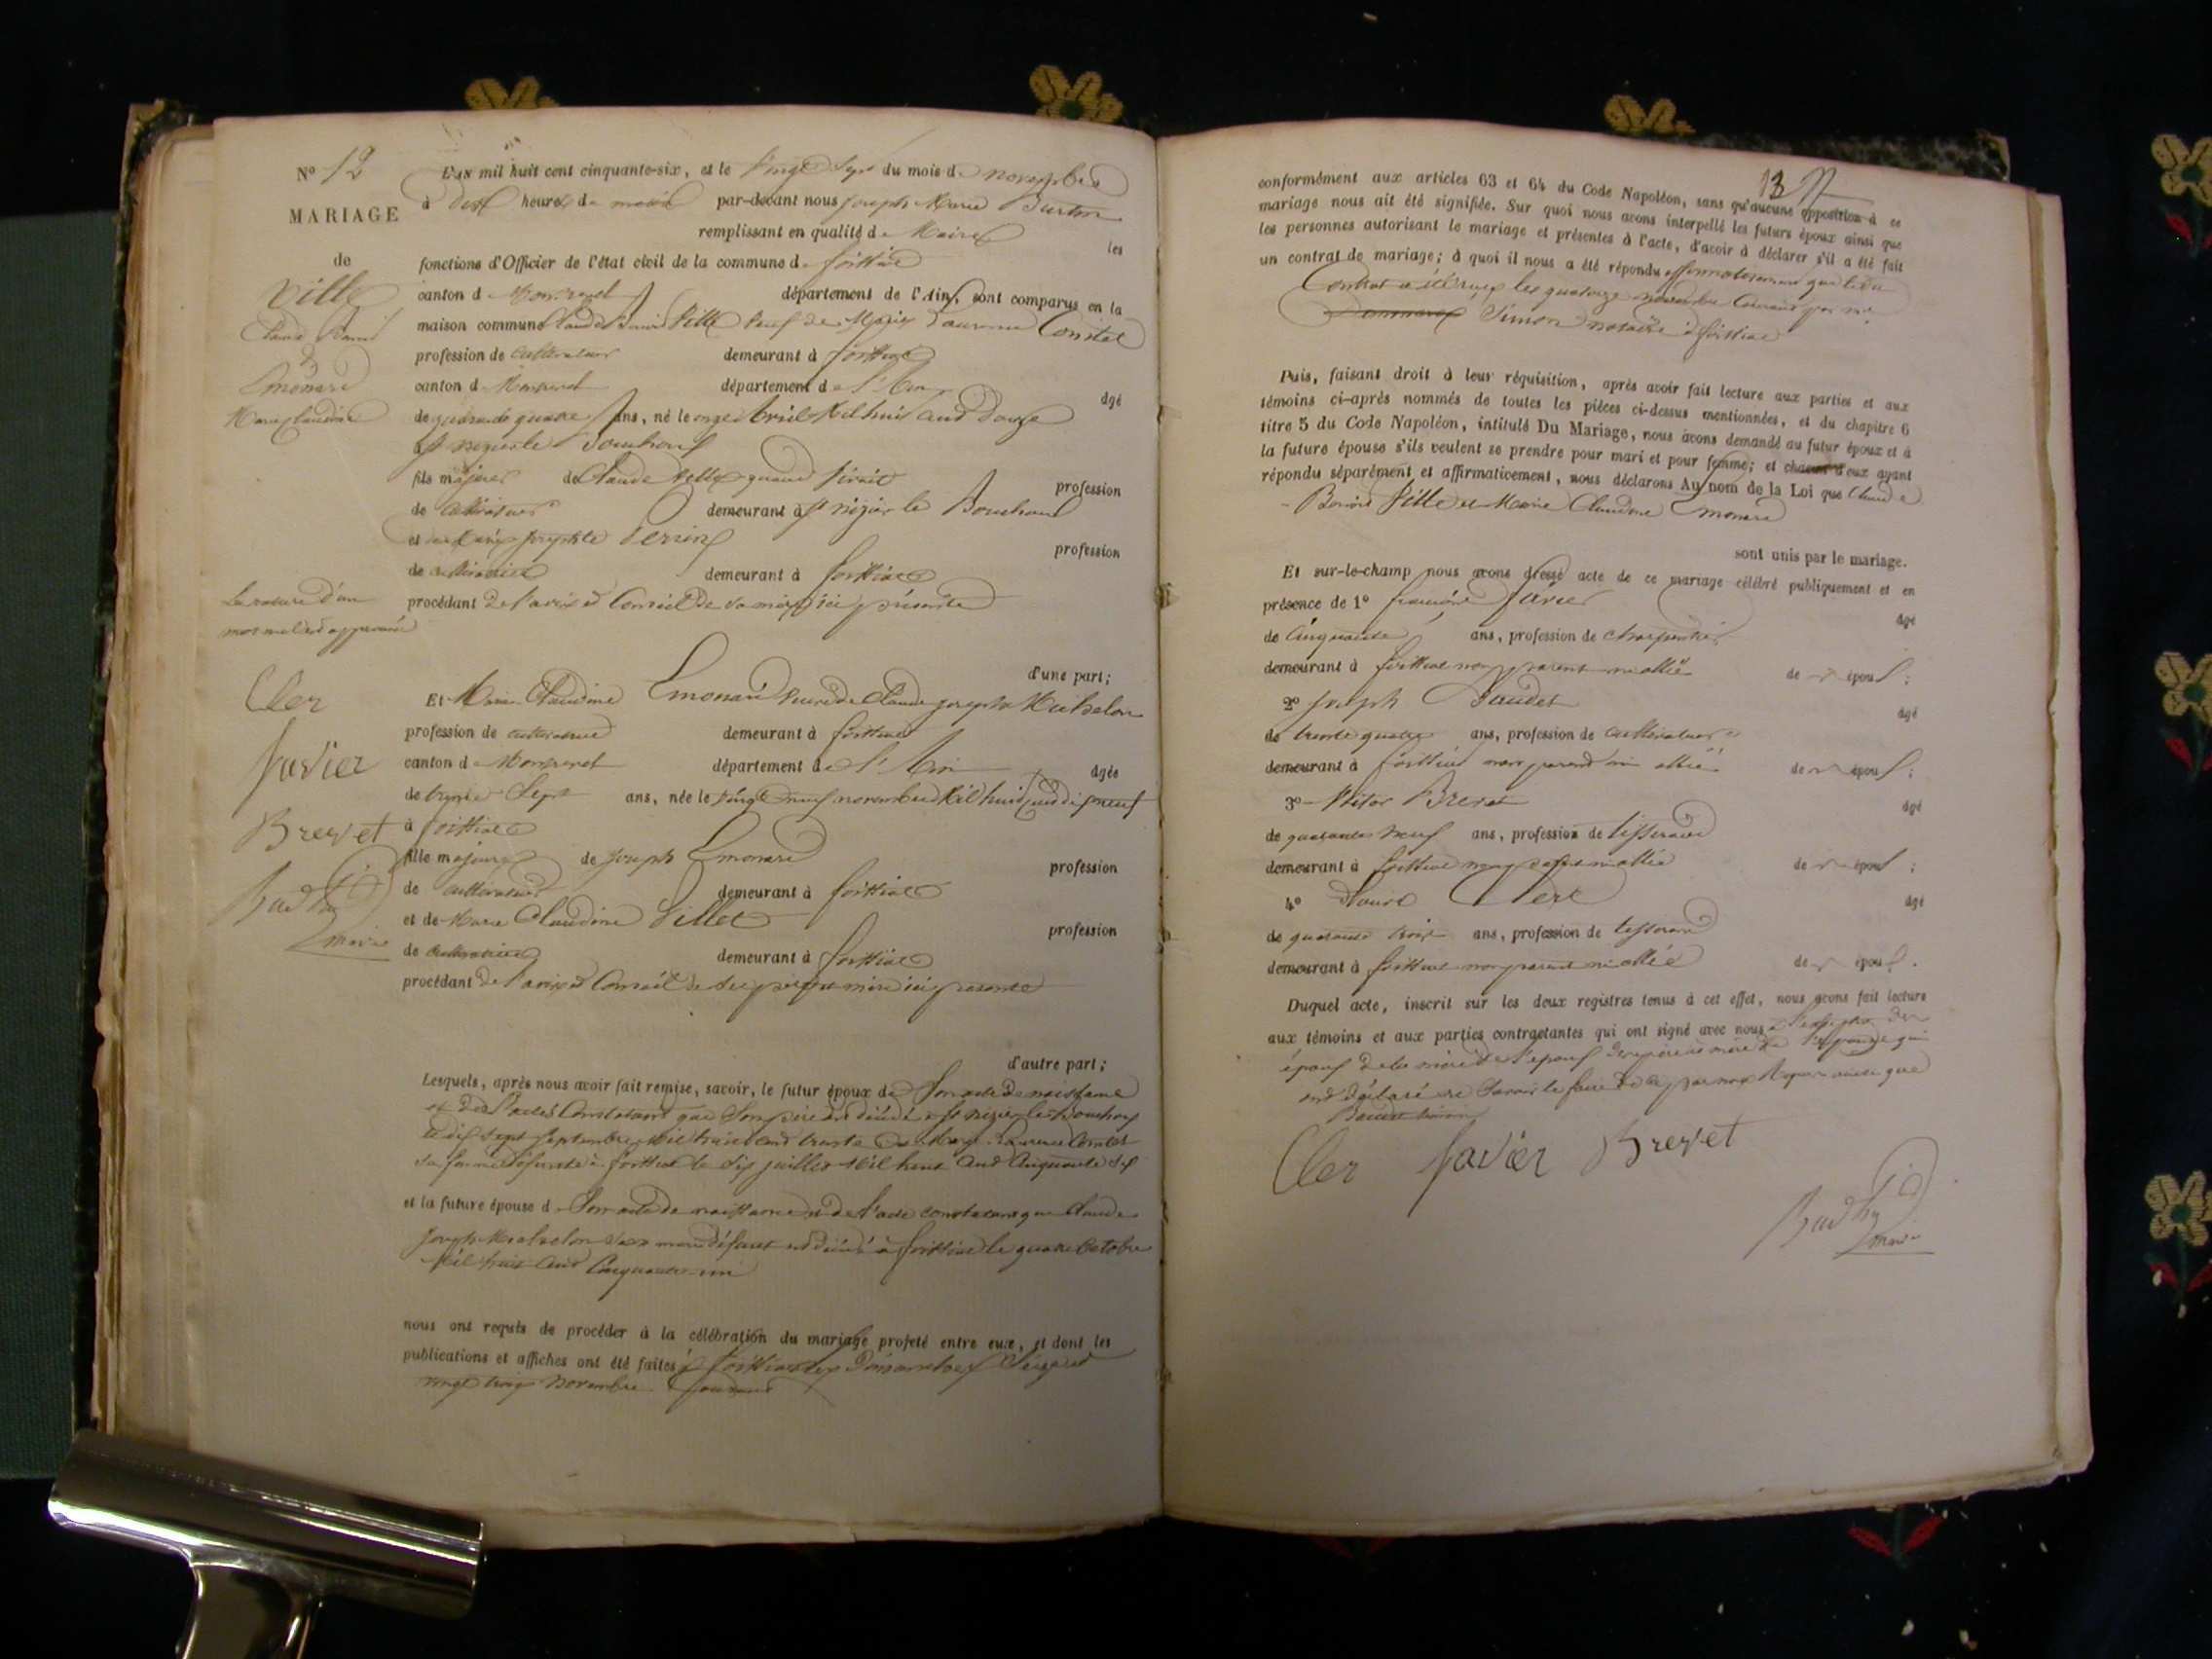 N° 12
MARIAGE
de
Ville
Claude Benoit
&
Emonard
Marie Claudine
La rature d'un
mot nul est approuvée
Cler
favier
Brevet
maire
L'AN mil huit cent cinquante-six, et le vingt sept du mois de novembre
à dix heures du matin par-devant nous joseph Marie
remplissant en qualité de Maire les
fonctions d'Officier de l'état civil de la commune de foissiat
canton de Montrevel département de l'Ain, sont comparus en la
maison commune Claude Benoit Ville veuf de Marie Laurence Comtet
profession de cultivateur demeurant à foissiat
canton de Montrevel département de l'Ain âgé
de quarante quatre ans, né le onze Avril Mil huit cent douze
à St nizier le Bouchoux
fils majeur de Claude Ville quand vivait profession
de cultivateur demeurant à St nizier le Bouchoux
et de Marie josephte Perrin profession
de cultivatrice demeurant à foissiat
procédant de l'avis et Conseil de sa mère ici présente
d'une part;
Et Marie Claudine Emonard veuve de Claude joseph Michelon
profession de cultivatrice demeurant à foissiat
canton de Montrevel département de l'Ain âgée
de trente Sept ans, née le vingt neuf novembre Mil huit cent dix neuf
à foissiat
fille majeure de joseph Emonard profession
de cultivateur demeurant à foissiat
et de Marie Claudine Villet profession
de cultivatrice demeurant à foissiat
procédant de l'avis et Conseil de ses père et mère ici présents
d'autre part;
Lesquels, après nous avoir fait remise, savoir, le futur époux de Son acte de naissance
et des actes Constatant que Son père est décédé à St nizier le Bouchoux
le dix sept Septembre Mil huit cent trente Marie Laurence Comtet
sa femme défunte à foissiat le dix juillet Mil huit cent Cinquante six
et la future épouse de Son acte de naissance et de l'acte constatant que Claude
joseph Michelon son mari défunt est décédé à foissiat le quatre Octobre
Mil huit cent Cinquante un
nous ont requis de procéder à la célébration du mariage projeté entre eux, et dont les
publications et affiches ont été faites à foissiat les Dimanches Seize et
vingt trois Novembre Courant
13
conformément aux articles 63 et 64 du Code Napoléon, sans qu'aucune opposition à ce
mariage nous ait été signifiée. Sur quoi nous avons interpellé les futurs époux ainsi que
les personnes autorisant le mariage et présentes à l'acte, d'avoir à déclarer s'il a été fait
un contrat de mariage; à quoi il nous a été répondu affirmativement que ledit
Contrat a été reçu le quatorze novembre Courant par me
Simon notaire à foissiat
Puis, faisant droit à leur réquisition, après avoir fait lecture aux parties et aux
témoins ci-après nommés de toutes les pièces ci-dessus mentionnées, et du chapitre 6
titre 5 du Code Napoléon, intitulé Du Mariage, nous avons demandé au futur époux et à
la future épouse s'ils veulent se prendre pour mari et pour femme; et chacun d'eux ayant
répondu séparément et affirmativement, nous déclarons Au nom de la Loi que Claude
Benoit Ville et Marie Claudine Emonard
sont unis par le mariage.
Et sur-le-champ nous avons dressé acte de ce mariage célébré publiquement et en
présence de 1° favier âgé
de Cinquante ans, profession de charpentier
demeurant à foissiat non parent ni allié des époux;
2° joseph Baudet âgé
de trente quatre ans, profession de cultivateur
demeurant à foissiat non parent ni allié des époux;
3° Brevet âgé
de quarante neuf ans, profession de tisserand
demeurant à foissiat non parent ni allié des époux;
4° Clerc âgé
de quarante trois ans, profession de tisserand
demeurant à foissiat non parent ni allié des époux.
Duquel acte, inscrit sur les deux registres tenus à cet effet, nous avons fait lecture
aux témoins et aux parties contractantes qui ont signé avec nous à l'exception des
époux de la mère de l'époux des père et mère de l'épouse qui
ont déclaré ne Savoir le faire de ce par nous Requis ainsi que
Baudet témoin
Cler favier Brevet
maire